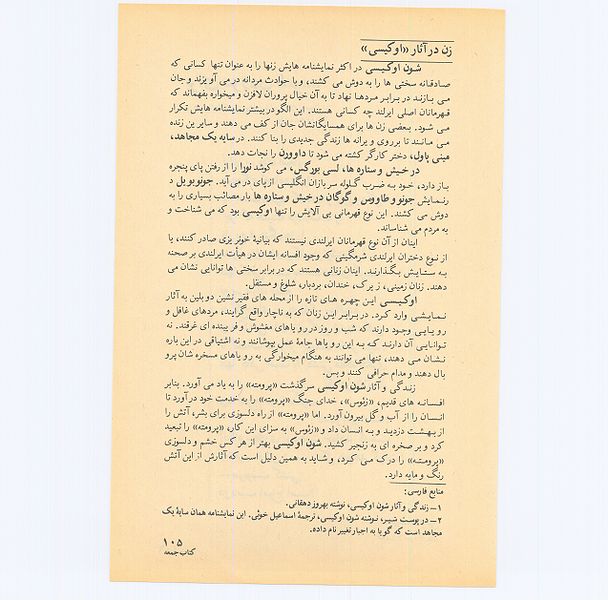 زن در آثار «اوکیسی»
شون اوکیسی در اکثر نمایشنامه هایش زنها را به عنوان تنها کسانی که
صادقانه سختی ها را به دوش می کشند، و با حوادث مردانه در می آویزند و جان
می بازند در برابر مردها نهاد تا به آن خیال پروران لافزن و میخواره بفهماند که
قهرمانان اصلی ایرلند چه کسانی هستند. این الگو در بیشتر نمایشنامه هایش تکرار
می شود. بعضی زن ها برای همسایگانشان جان از کف می دهند و سایرین زنده
می مانند تا بر روی ویرانه ها زندگی جدیدی را بنا کنند. در سایه یک مجاهد،
مینی پاول، دختر کارگر کشته می شود تا داوورن را نجات دهد.
در خیش و ستاره ها، بسی بورگس، می کوشد نورا را از رفتن پای پنجره
باز دارد، خود به ضرب گلوله سربازان انگلیسی از پای در می آید. جونوبویل د
رنمایش جونو و طاووس و گوگان در خیش و ستاره ها بار مصائب بسیاری را به
دوش می کشند. این نوع قهرمانی بی آلایش را تنها اوکیسی بود که می شناخت و
به مردم می شناساند.
اینان از آن نوع قهرمانان ایرلندی نیستند که بیانیهٔ خونریزی صادر کنند، یا
از نوع دختران ایرلندی شرمگینی که وجود افسانه ایشان در هیأت ایرلندی بر صحنه
به ستایش بگذارند. اینان زنانی هستند که در برابر سختی ها توانایی نشان می
دهند. زنان زمینی، زیرک، خندان، بردبار، شلوغ و مستقل.
اوکیسی این چهره های تازه را از محله های فقیر نشین دوبلین به آثار
نمایشی وارد کرد. در برابر این زنان که به ناچار واقع گرایند، مردهای غافل و
رویایی وجود دارند که شب و روز در رویاهای مغشوش و فریبنده ای غرقند. نه
توانایی آن دارند که به این رویاها جامهٔ عمل بپوشانند و نه اشتیاقی در این باره
نشان می دهند، تنها می توانند به هنگام میخوارگی به رویاهای مسخره شان پرو
بال دهند و مدام حرافی کنند و بس.
زندگی و آثار شون اوکیسی سرگذشت «پرومته» را به یاد می آورد. بنابر
افسانه های قدیم، «زئوس»، خدای جنگ «پرومته» را به خدمت خود در آورد تا
انسان را از آب و گل بیرون آورد. اما «پرومته» از راه دلسوزی برای بشر، آتش را
از بهشت دزدید و به انسان داد و «زئوس» به سزای این کار، «پرومته» را تبعید
کرد و بر صخره ای به زنجیر کشید. شون اوکیسی بهتر از هر کس خشم و دلسوزی
«پرومته» را درک می کرد، و شاید به همین دلیل است که آثارش از این آتش
رنگ و مایه دارد.
منابع فارسی:
۱ــ زندگی و آثار شون اوکیسی، نوشته بهروز دهقانی.
۲ــ در پوست شیر، نوشته شون اوکیسی، ترجمهٔ اسماعیل خوئی. این نمایشنامه همان سایهٔ یک
مجاهد است که گویا به اجبار تغییر نام داده.
۱۰۵
کتاب جمعه